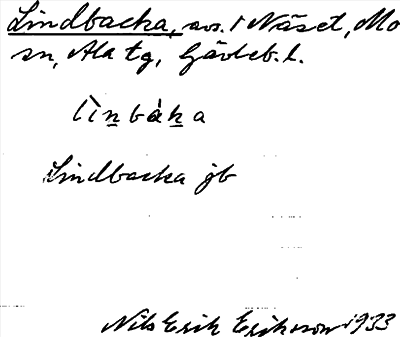 Lindbacka, avs. 1 Näset, Mo
sn, Ala tg, Gävleb. l.
lìn̲bák̲a
Lindbacka jb
Nils Erik Eriksson 1933